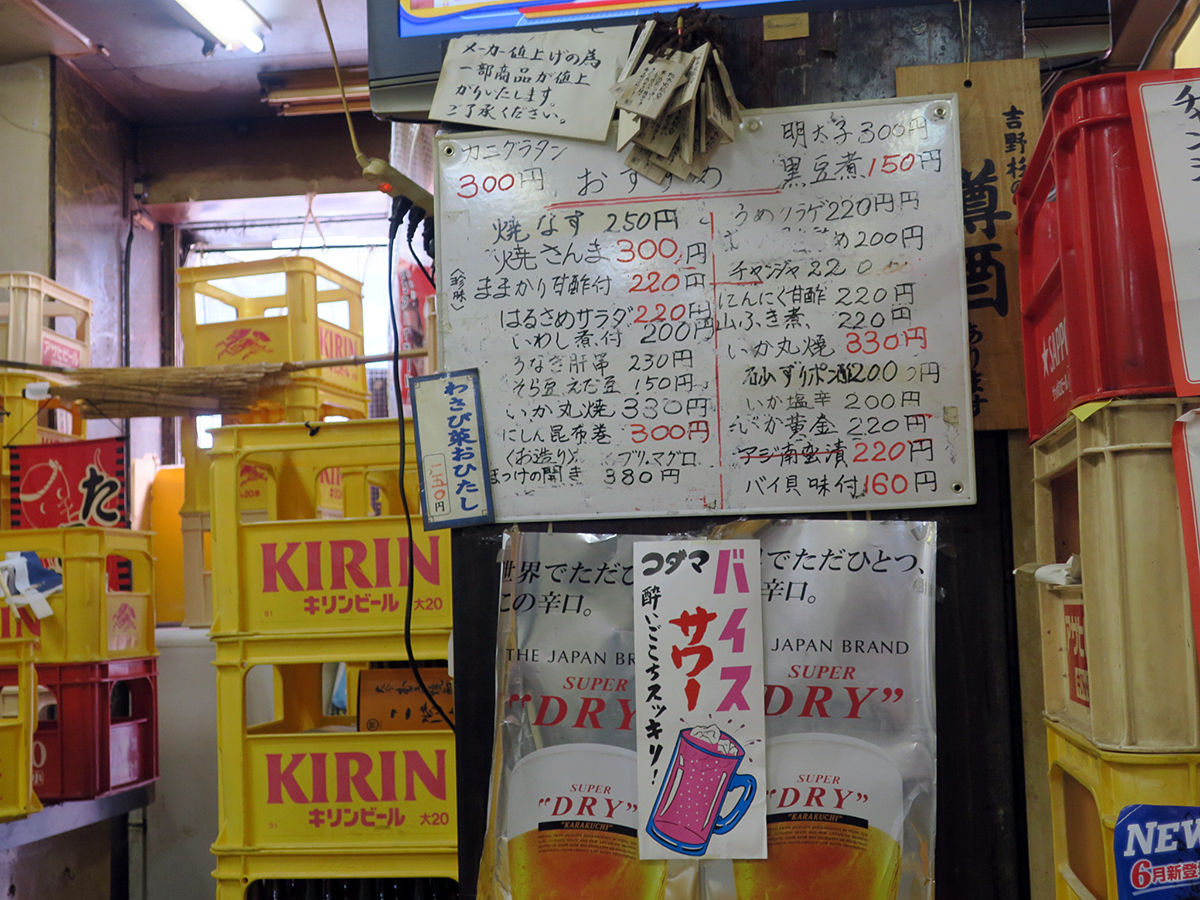 メーカー値上げの為
一部商品が値上
がりいたします。
ご了承ください。
カニグラタン
300円
おすすめ
明太子300円
黒豆煮150円
焼なす 250円
焼さんま300円
〈珍味〉
ままかり甘酢付 220円
はるさめサラダ220円
いわし煮付 200円
うなぎ肝串 230円
そら豆 えだ豆 150円
いか丸焼 330円
にしん昆布巻 300円
〈お造り〉 ブリ、マグロ
ほっけの開き 380円
うめクラゲ220円
200円
チャンジャ220
にんにく甘酢 220円
山ふき煮、220円
いか丸焼 330円
砂ずりポン酢200円
いか塩辛 200円
いか黄金 220円
アジ南蛮漬220円
バイ貝味付160円
わさび菜おひたし
二五〇円
吉野杉の
樽酒
あります
アサヒビール
KIRIN
KIRIN
キリンビール 大20
91
KIRIN
キリンビール 大20
91
た
世界でただひ
この辛口。
THE JAPAN BR
SUPER
"DRY"
SUPER
"DRY"
"KARAKUCHI"
コダマ
バイスサワー
酔いごこちスッキリ!
でただひとつ、
辛口。
JAPAN BRAND
SUPER
"DRY"
SUPER
"DRY"
"KARAKUCHI"
チ
★SAPPO
アサヒ
NEW
6月新登